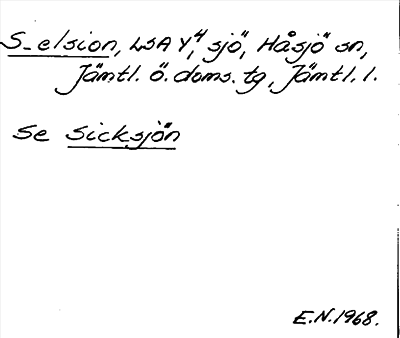 S_elsion, LSA Y,4, sjö, Håsjö sn,
Jämtl. ö. doms. tg, Jämtl. l.
se Sicksjön
E.N. 1968.